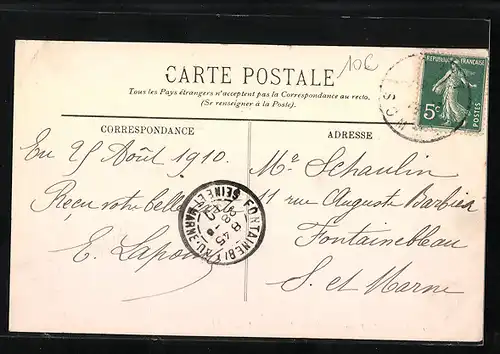 10c
CARTE POSTALE
Tous les Pays étrangers n'acceptent pas la Correspondance au recto.
(Se renseigner à la Poste).
REPUBLIQUE FRANÇAISE
5c
POSTES
CORRESPONDANCE
En 25 Août 1910.
Reçu votre belle
E. Lapou
FONTAINEBLEAU
SEINE ET MARNE
8 45
ADRESSE
Me Schaulin
11 rue Auguste Barbier
Fontainebleau
S. et Marne